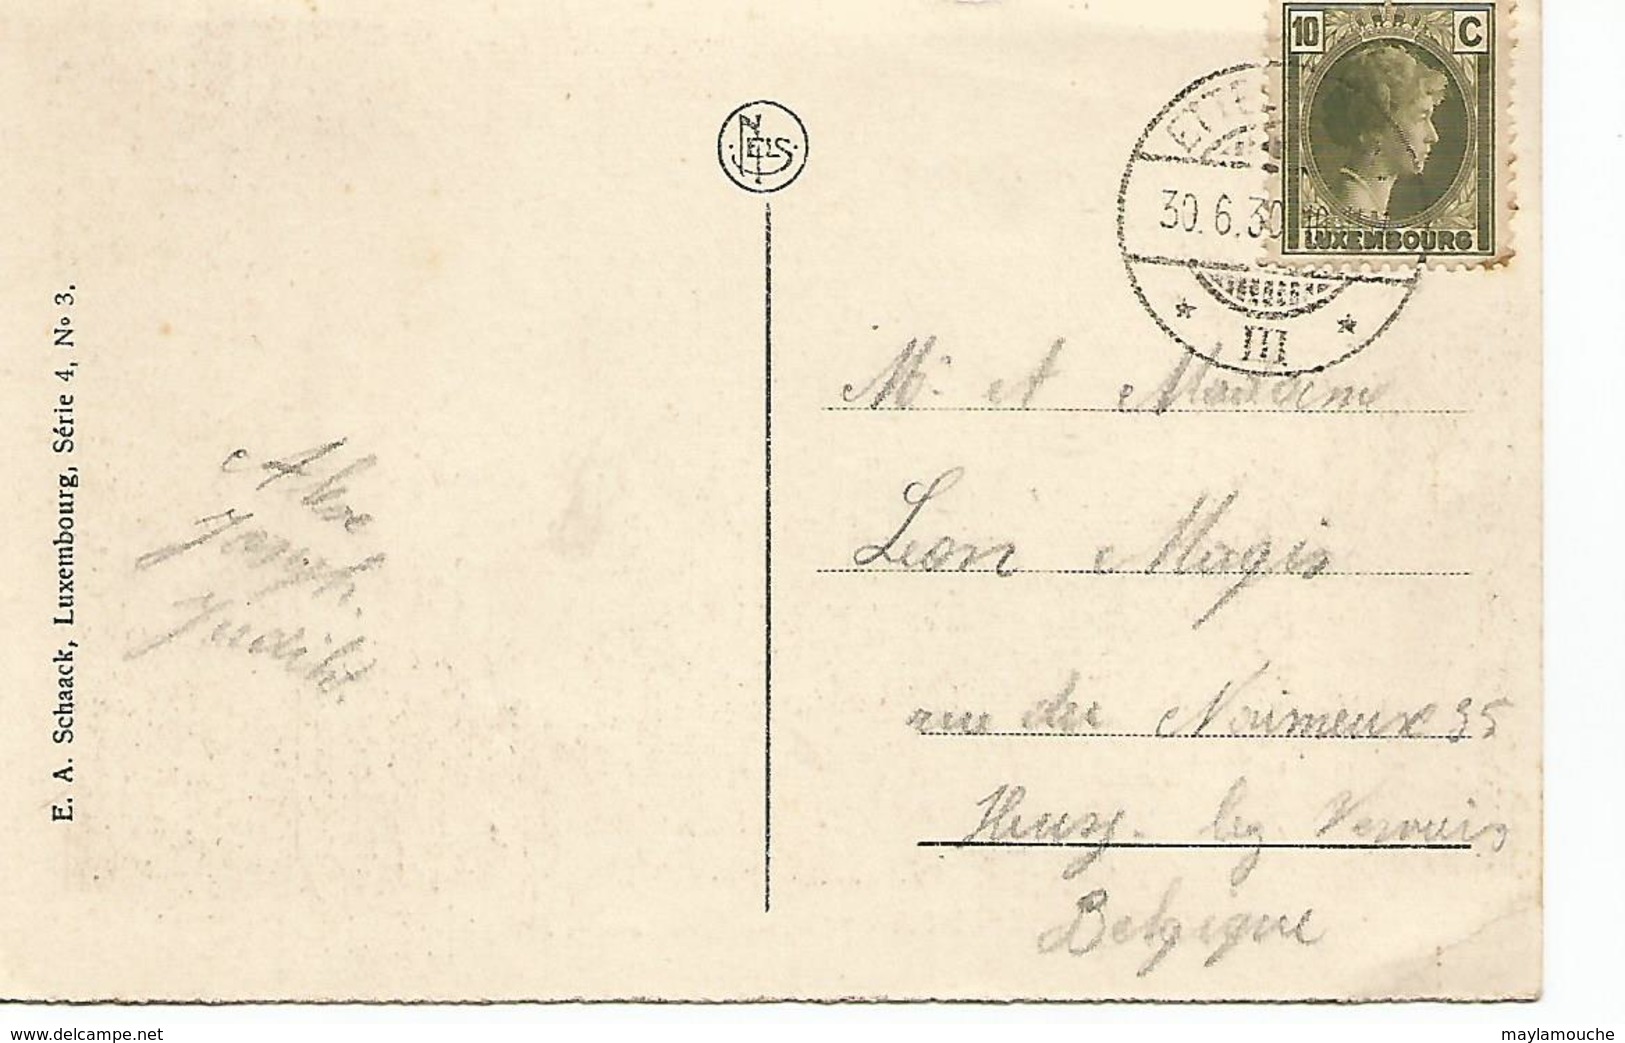 E. A. Schaack, Luxembourg, Série 4, No 3.
NELS
10 C
LUXEMBOURG
ETTE
30.6.30
III
Joseph.
Judith.
Mr et Madame
Léon Magis
rue de 35
Heusy. lez Verviers
Belgique
www.delcampe.net
maylamouche